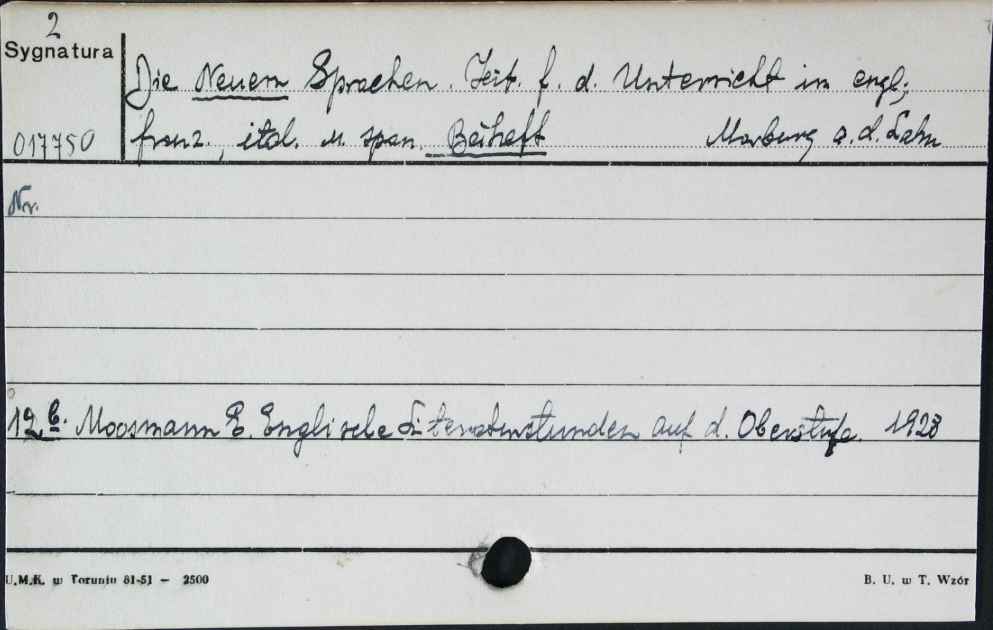 2
Sygnatura
Die Neuern Sprachen. Zeit. f. d. Unterricht im engl.,
017750 franz., ital. u. span. Beiheft Marburg a. d. Lahn
Nr.
12 b. Moosmann E. Englische Literaturstunden auf d. Oberstufe. 1928
U.M.K. w Toruniu 81-51 — 2500 B. U. w T. Wzór